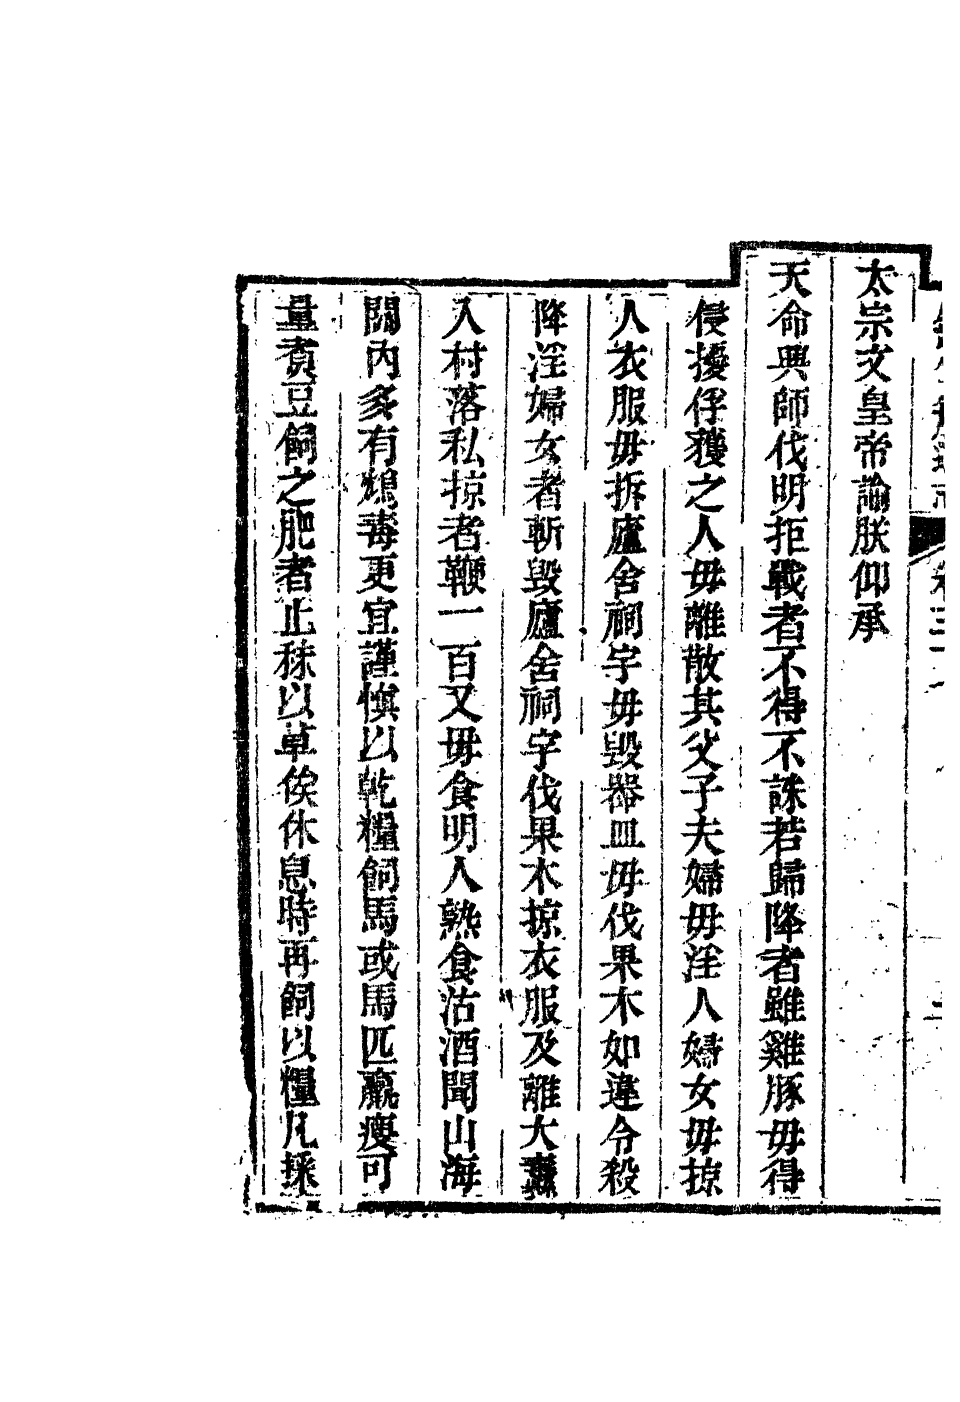 太宗文皇帝諭朕仰承
天命興師伐明拒戰者不得不誅若歸降者雖雞豚毋得
侵擾俘獲之人毋離散其父子夫婦毋淫人婦女毋掠
人衣服毋拆廬舍祠宇毋毀器皿毋伐果木如違令殺
降淫婦女者斬毀廬舍祠宇伐果木掠衣服及離大纛
入村落私掠者鞭一百又毋食明人熟食沽酒聞山海
關內多有鴆毒更宜謹愼以乾糧飼馬或馬匹羸瘦可
量煑豆飼之肥者止秣以草俟休息時再飼以糧凡採